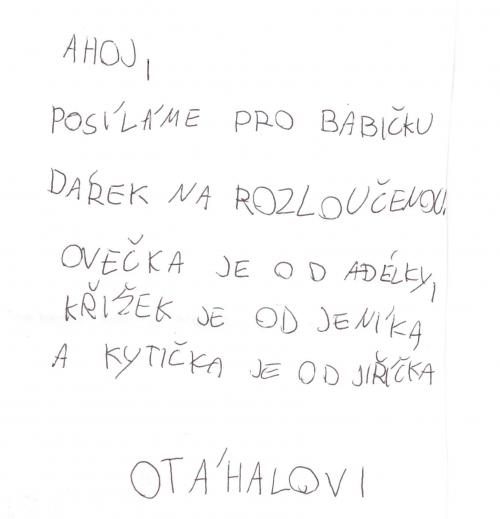 AHOJ,
POSÍLÁME PRO BABIČKU
DÁREK NA ROZLOUČENOU.
OVEČKA JE OD ADÉLKY,
KŘÍŽEK JE OD JENÍKA
A KYTIČKA JE OD JIŘÍČKA
OTÁHALOVI